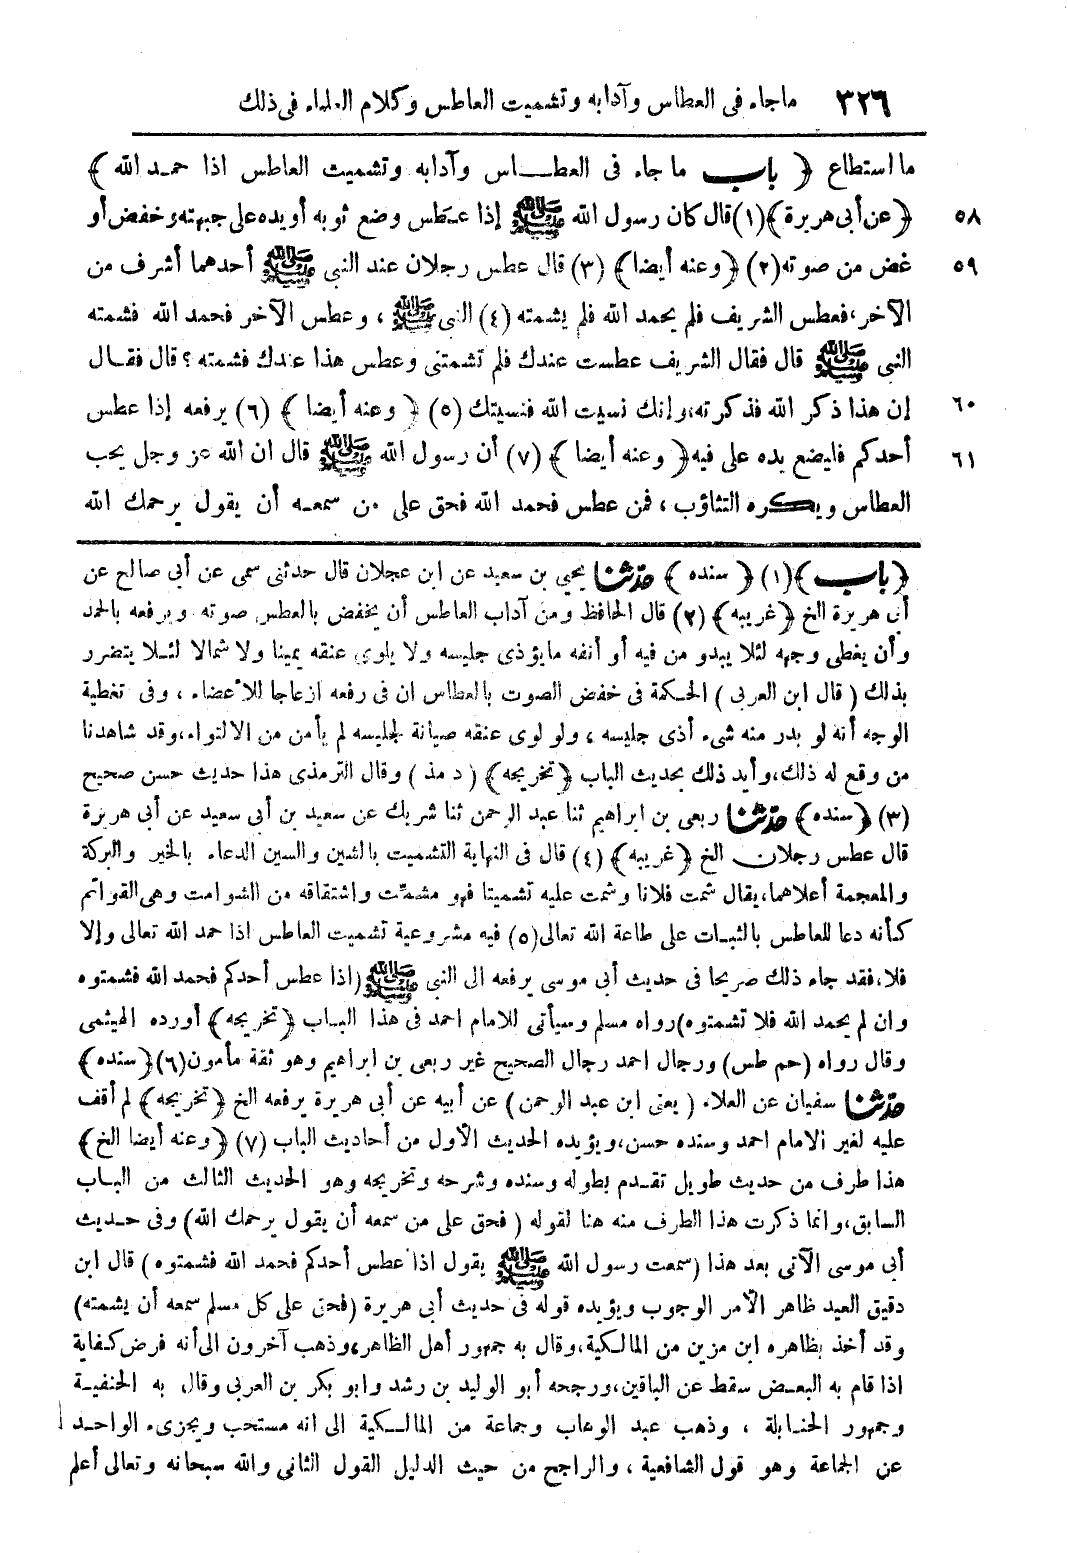 ٣٢٦ ماجاء فى العطاس وآدابه وتشميت العاطس وكلام العلماء فى ذلك
ما استطاع ﴿ باب ما جاء فى العطــاس وآدابه وتشميت العاطس اذا حمد الله ﴾
٥٨ ﴿عن أبى هريرة﴾(١)قال كان رسول الله ﷺ إذا عطس وضع ثوبه أو يده على جبهته وخفض أو
٥٩ غض من صوته(٢) ﴿وعنه أيضا﴾ (٣) قال عطس رجلان عند النبى ﷺ أحدهما أشرف من
الآخر،فعطس الشريف فلم يحمد الله فلم يشمته (٤) النبى ﷺ ، وعطس الآخر فحمد الله فشمته
النبى ﷺ قال فقال الشريف عطست عندك فلم تشمتنى وعطس هذا عندك فشمته ؟ قال فقــال
٦٠ إن هذا ذكر الله فذكرته،وإنك نسيت الله فنسيتك (٥) ﴿ وعنه أيضا ﴾ (٦) يرفعه إذا عطس
٦١ أحدكم فليضع يده على فيه﴿ وعنه أيضا ﴾ (٧) أن رسول الله ﷺ قال ان الله عز وجل يحب
العطاس ويكره التثاؤب ، فمن عطس فحمد الله فحق على من سمعه أن يقول يرحمك الله
﴿باب﴾(١) ﴿ سنده ﴾ حدثنا يحيي بن سعيد عن ابن عجلان قال حدثنى سمى عن أبى صالح عن
أبى هريرة الخ ﴿غريبه﴾ (٢) قال الحافظ ومن آداب العاطس أن يخفض بالعطس صوته ويرفعه بالحمد
وأن يغطى وجهه لئلا يبدو من فيه أو أنفه مايؤذى جليسه ولا يلوى عنقه يمينا ولا شمالا لئــلا يتضرر
بذلك ( قال ابن العربى ) الحكمة فى خفض الصوت بالعطاس ان فى رفعه ازعاجا للأعضاء ، وفى تغطية
الوجه أنه لو بدر منه شىء أذى جليسه ، ولو لوى عنقه صيانة لجليسه لم يأمن من الالتواء،وقد شاهدنا
من وقع له ذلك،وأيد ذلك بحديث الباب ﴿تخريجه﴾ ( د مذ ) وقال الترمذى هذا حديث حسن صحيح
(٣) ﴿سنده﴾ حدثنا ربعى بن ابراهيم ثنا عبد الرحمن ثنا شريك عن سعيد بن أبى سعيد عن أبى هريرة
قال عطس رجلان الخ ﴿غريبه﴾ (٤) قال فى النهاية التشميت بالشين والسين الدعاء بالخير والبركة
والمعجمة أعلاهما،يقال شمت فلانا وشمت عليه تشميتا فهو مشمّت واشتقاقه من الشوامت وهى القوائم
كأنه دعا للعاطس بالثبــات على طاعة الله تعالى(٥) فيه مشروعية تشميت العاطس اذا حمد الله تعالى وإلا
فلا،فقد جاء ذلك صريحا فى حديث أبى موسى يرفعه الى النبى ﷺ (اذا عطس أحدكم فحمد الله فشمتوه
وان لم يحمد الله فلا تشمتوه)رواه مسلم وسيأتى للامام احمد فى هذا البــاب ﴿تخريجه﴾ أورده الهيثمى
وقال رواه (حم طس) ورجال احمد رجال الصحيح غير ربعى بن ابراهيم وهو ثقة مأمون(٦)﴿سنده﴾
حدثنا سفيان عن العلاء ( يعنى ابن عبد الرحمن) عن أبيه عن أبى هريرة يرفعه الخ ﴿تخريجه﴾ لم أقف
عليه لغير الامام احمد وسنده حسن،ويؤيده الحديث الأول من أحاديث الباب (٧) ﴿وعنه أيضا الخ﴾
هذا طرف من حديث طويل تقــدم بطوله وسنده وشرحه وتخريجه وهو الحديث الثالث من البــاب
السابق،وانما ذكرت هذا الطرف منه هنا لقوله ( فحق على من سمعه أن يقول يرحمك الله) وفى حــديث
أبى موسى الآتى بعد هذا (سمعت رسول الله ﷺ يقول اذا عطس أحدكم فحمد الله فشمتوه ) قال ابن
دقيق العيد ظاهر الأمر الوجوب ويؤيده قوله فى حديث أبى هريرة (فحق على كل مسلم سمعه أن يشمته)
وقد أخذ بظاهره ابن مزين من المالــكية،وقال به جمهور أهل الظاهر،وذهب آخرون الى أنه فرض كفاية
اذا قام به البعــض سقط عن الباقين،ورجحه أبو الوليد بن رشد وابو بكر بن العربى وقال به الحنفيــة
وجمهور الحنــابلة ، وذهب عبد الوهاب وجماعة من المالــكية الى انه مستحب ويجزىء الواحــد
عن الجماعة وهو قول الشافعية ، والراجح من حيث الدليل القول الثانى والله سبحانه وتعالى أعلم